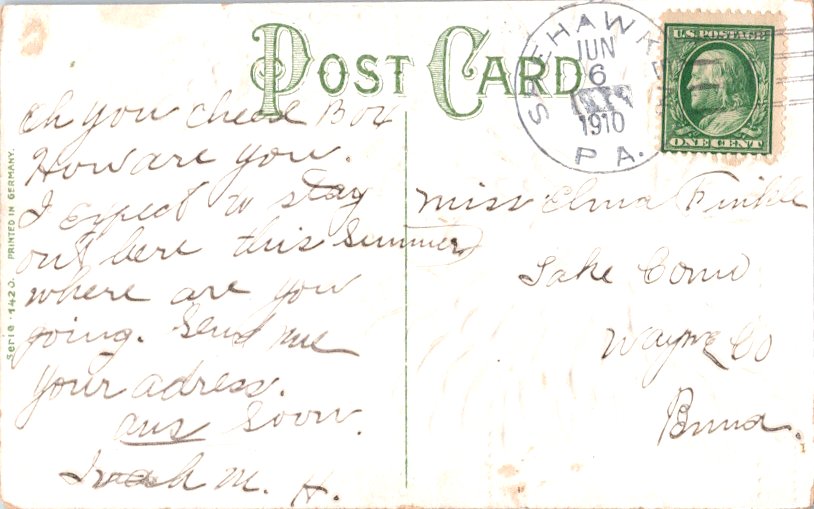 POST CARD
SHEHAWKEN
JUN
6
1910
PA.
U.S. POSTAGE
ONE CENT
oh you cheese Box
How are you.
I expect to stay
out here this summer
where are you
going. Send me
your adress.
ans Soon.
M. H.
Miss Elma Finkle
Lake Como
Wayne Co
Penna.
Serie 1420. PRINTED IN GERMANY.